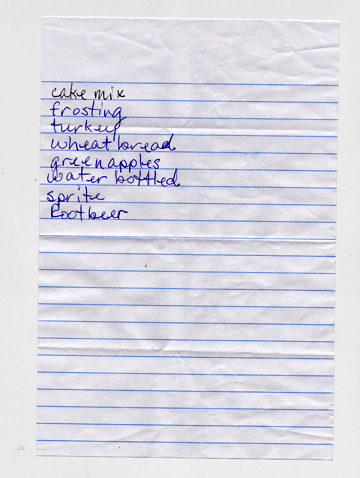 cake mix
frosting
turkey
wheat bread
green apples
water bottled
sprite
Rootbeer